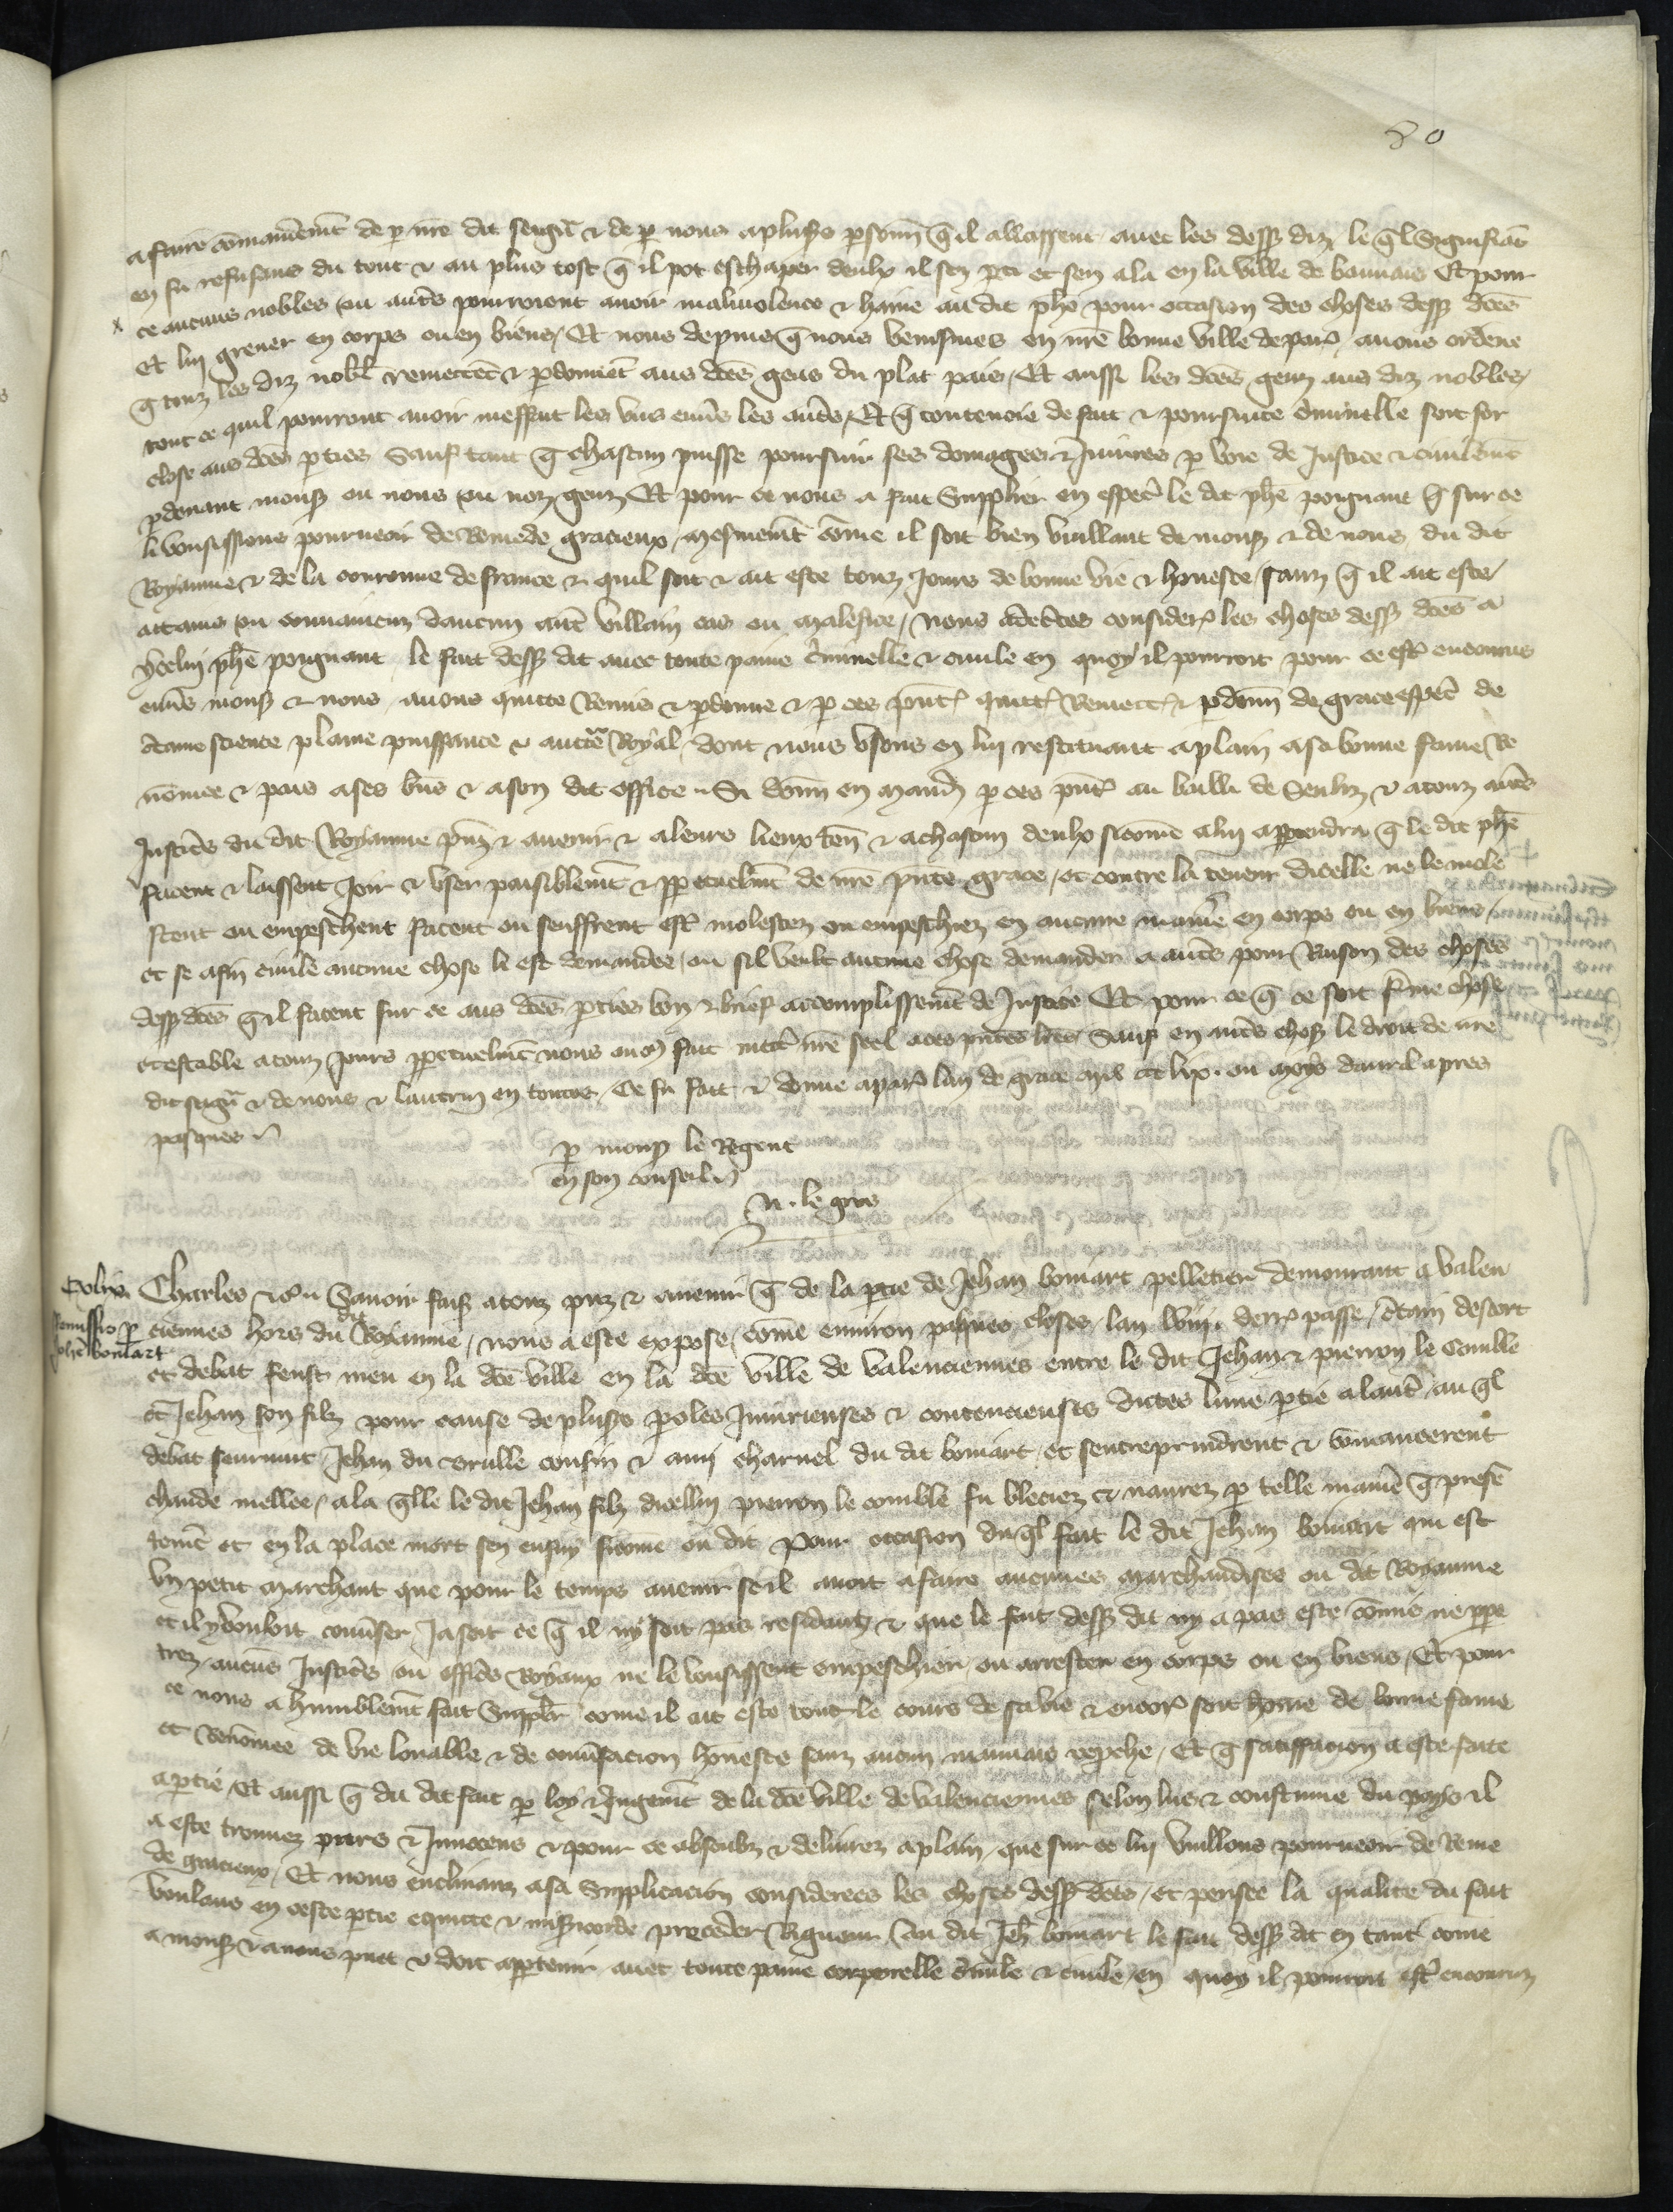 80
a faire cōmandemēt de p nr̄e dit seigr̄ & de p nous a plus̄s p̱sonn̄ q̄ il alassent auec les dess⁹ diz le q̄l Signifiāt
en fu refusans du tout & au plus tost q̄ il pot eschaper deulx il sen p̱ti et sen ala en la ville de beauuais Et pour
ce aucuns nobles ou autr̄s pourroient auoir maliuolence & haine au dit ph̄e pour occasion des choses dess⁹ dc̄es
Et lui greuer en corps ou en biens / Et nous depuis q̄ nous venismes en nr̄e bonne ville de par⁹ auons ordene
q̄ touz les diz nobl̄ remettēt & p̱donnēt aus dc̄es gens du plat pais / Et aussi les dc̄es genz aus diz nobles /
tout ce quil pourront auoir meffait les vns enuers les autr̄s / Et q̄ contencion de fait & poursuite cr̄iminelle soit for
close aus dc̄es p̱ties Sauf tant q̄ chascun puisse poursuir ses domages & Iniures p voie de Justice & ciuilemēt
p̱deuant mons⁹ ou nous ou noz genz Et pour ce nous a fait Supplier en espec̄ le dit ph̄e poignant q̄ sur ce
li vousissions pourueoir de Remede gracieux / mesmemēt cōme il soit bien vuillant de mons⁹ & de nous du dit
Royaume & de la couronne de france & quil soit & ait este touz Jours de bonne vie & honeste / sanz q̄ il ait este
attains ou conuaincuz daucun autr̄e villain cas ou malefice / Nous adecertes consider⁹ les choses dess⁹ dc̄es a
ycelui ph̄e poignant le fait dess⁹ dit auec toute paine cr̄iminelle & ciuile en quoy il pourroit pour ce estr̄ encouruz
enuers mons⁹ & nous auons quitte Remis & p̱donne & p ces p̄nt⁹ quitt⁹ Remett⁹ & p̱donn̄ de grace espec̄ de
certaine science plaine puissance & auctē Royal / dont nous vsons en lui restituant a plain a sa bonne fame Re
nōmee & pais a ses biēs & a son dit office Si donn̄ en mandem̄ p ces p̄nt⁹ au bailli de Senliz & a touz autr̄s
Justic̄s du dit Royaume p̄nz & auenir & a leurs lieux ten̄ & a chascun deulx sicōme a lui ap̱tendra q̄ le dit ph̄e
facent & laissent Joir & vser paisiblemēt & p̱petuelmēt de nr̄e p̄nte grace / et contre la teneur dicelle ne le mole
stent ou empeschent facent ou seuffrent estr̄ molestez ou empeschiez en aucune maniēre en corps ou en biens /
et se a fin ciuile aucune chose li est demandee / ou sil veult aucune chose demander a autr̄s pour Raison des choses
dess⁹ dc̄es q̄ il facent sur ce aus dc̄es p̱ties bon & brief accomplissemēt de Justice Et pour ce q̄ ce soit ferme chose
et estable a touz Jours p̱petuelmēt nous auons fait mettr̄ nr̄e seel a ces p̄ntes lr̄es Sauf en autr̄s chos⁹ le droit de nr̄e
dit seigr̄ & de nous & lautrui en toutes / Ce fu fait & donne a par⁹ lan de grace mil ccc lix. ou moys dauril apres
pasques
p mons⁹ le Regent
en son conseil
N. le gros
Remissio p̱
Joh̄e boniart
Charles &c̄ Sauoir fais⁹ a touz p̄nz & auenir q̄ de la p̱tie de Jehan boniart pelletier demourant a valen
ciennes hors du dit Royaume / nous a este expose / cōme enuiron pasques closes lan lviii. derr⁹ passe / cērtain descort
et debat feust meu en la dc̄e ville en la dc̄e ville de valenciennes entre le dit Jehan & pierron le Comble
et Jehan son filz pour cause de plus̄s p̱oles Iniurieuses & contencieuses dictes lune p̱tie a lautr̄ / au q̄l
debat seuruint Jehan du Brulle cousin & ami charnel du dit boniart et sentreprindrent & cōmancerent
chaude mellee / a la q̄lle le dit Jehan filz dicellui pierron le comble fu bleciez & naurez p telle maniēre q̄ presē
temēt et en la place mort sen ensuy sicōme on dit Pour occasion du q̄l fait le dit Jehan boniart qui est
vn petit marchant que pour le temps auenir se il auoit a faire aucunes marchandises ou dit Royaume
et il y vouloit conuērser / Ja soit ce q̄ il ny soit pas residanz & que le fait dess⁹ dit ny a pas este cōmis ne p̱pe
trez / aucūs Justic̄s ou offic̄s Royaux ne le vousissent empeschier ou arrester en corps ou en biens / Et pour
ce nous a humblemēt fait Supplr̄ cōme il ait este tout le cours de sa vie & encor⁹ soit hōme de bonne fame
et Renōmee de vie louable & de conuērsacion honeste sanz aucun mauuais rep̱che / Et q̄ satiffacion a este faite
a p̱tie / Et aussi q̄ du dit fait p loy & Jugemēt de la dc̄e ville de valenciennes selon lus & coustume du pays il
a este trouuez purs & Innocens & pour ce absoulz & deliurez a plain / que sur ce lui vuillons pourueoir de Reme
de gracieux / Et nous enclinanz a sa Supplicacion considerees les choses dess⁹ dc̄es / et pensee la qualite du fait
voulans en ceste p̱tie equite & misērcorde preceder Rigueur / au dit Jeh̄ boniart le fait dess⁹ dit en tant cōme
a mons⁹ & a nous puet & doit ap̱tenir auec toute paine corporelle cr̄im̄le & ciuile / en quoy il pourroit estr̄ encouruz